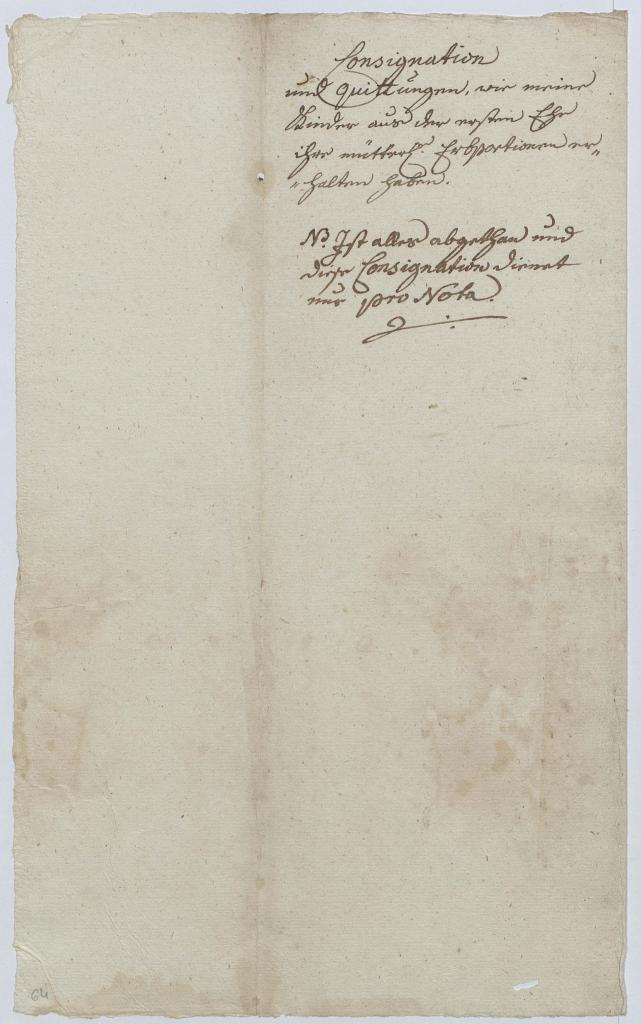 Consignation
und Quittungen, wie meine
Kinder aus der ersten Ehe
ihre mütterl. Erbportionen er„
„halten haben.
NB. Ist alles abgethan und
diese Consignation dienet
nur pro Nota.
64